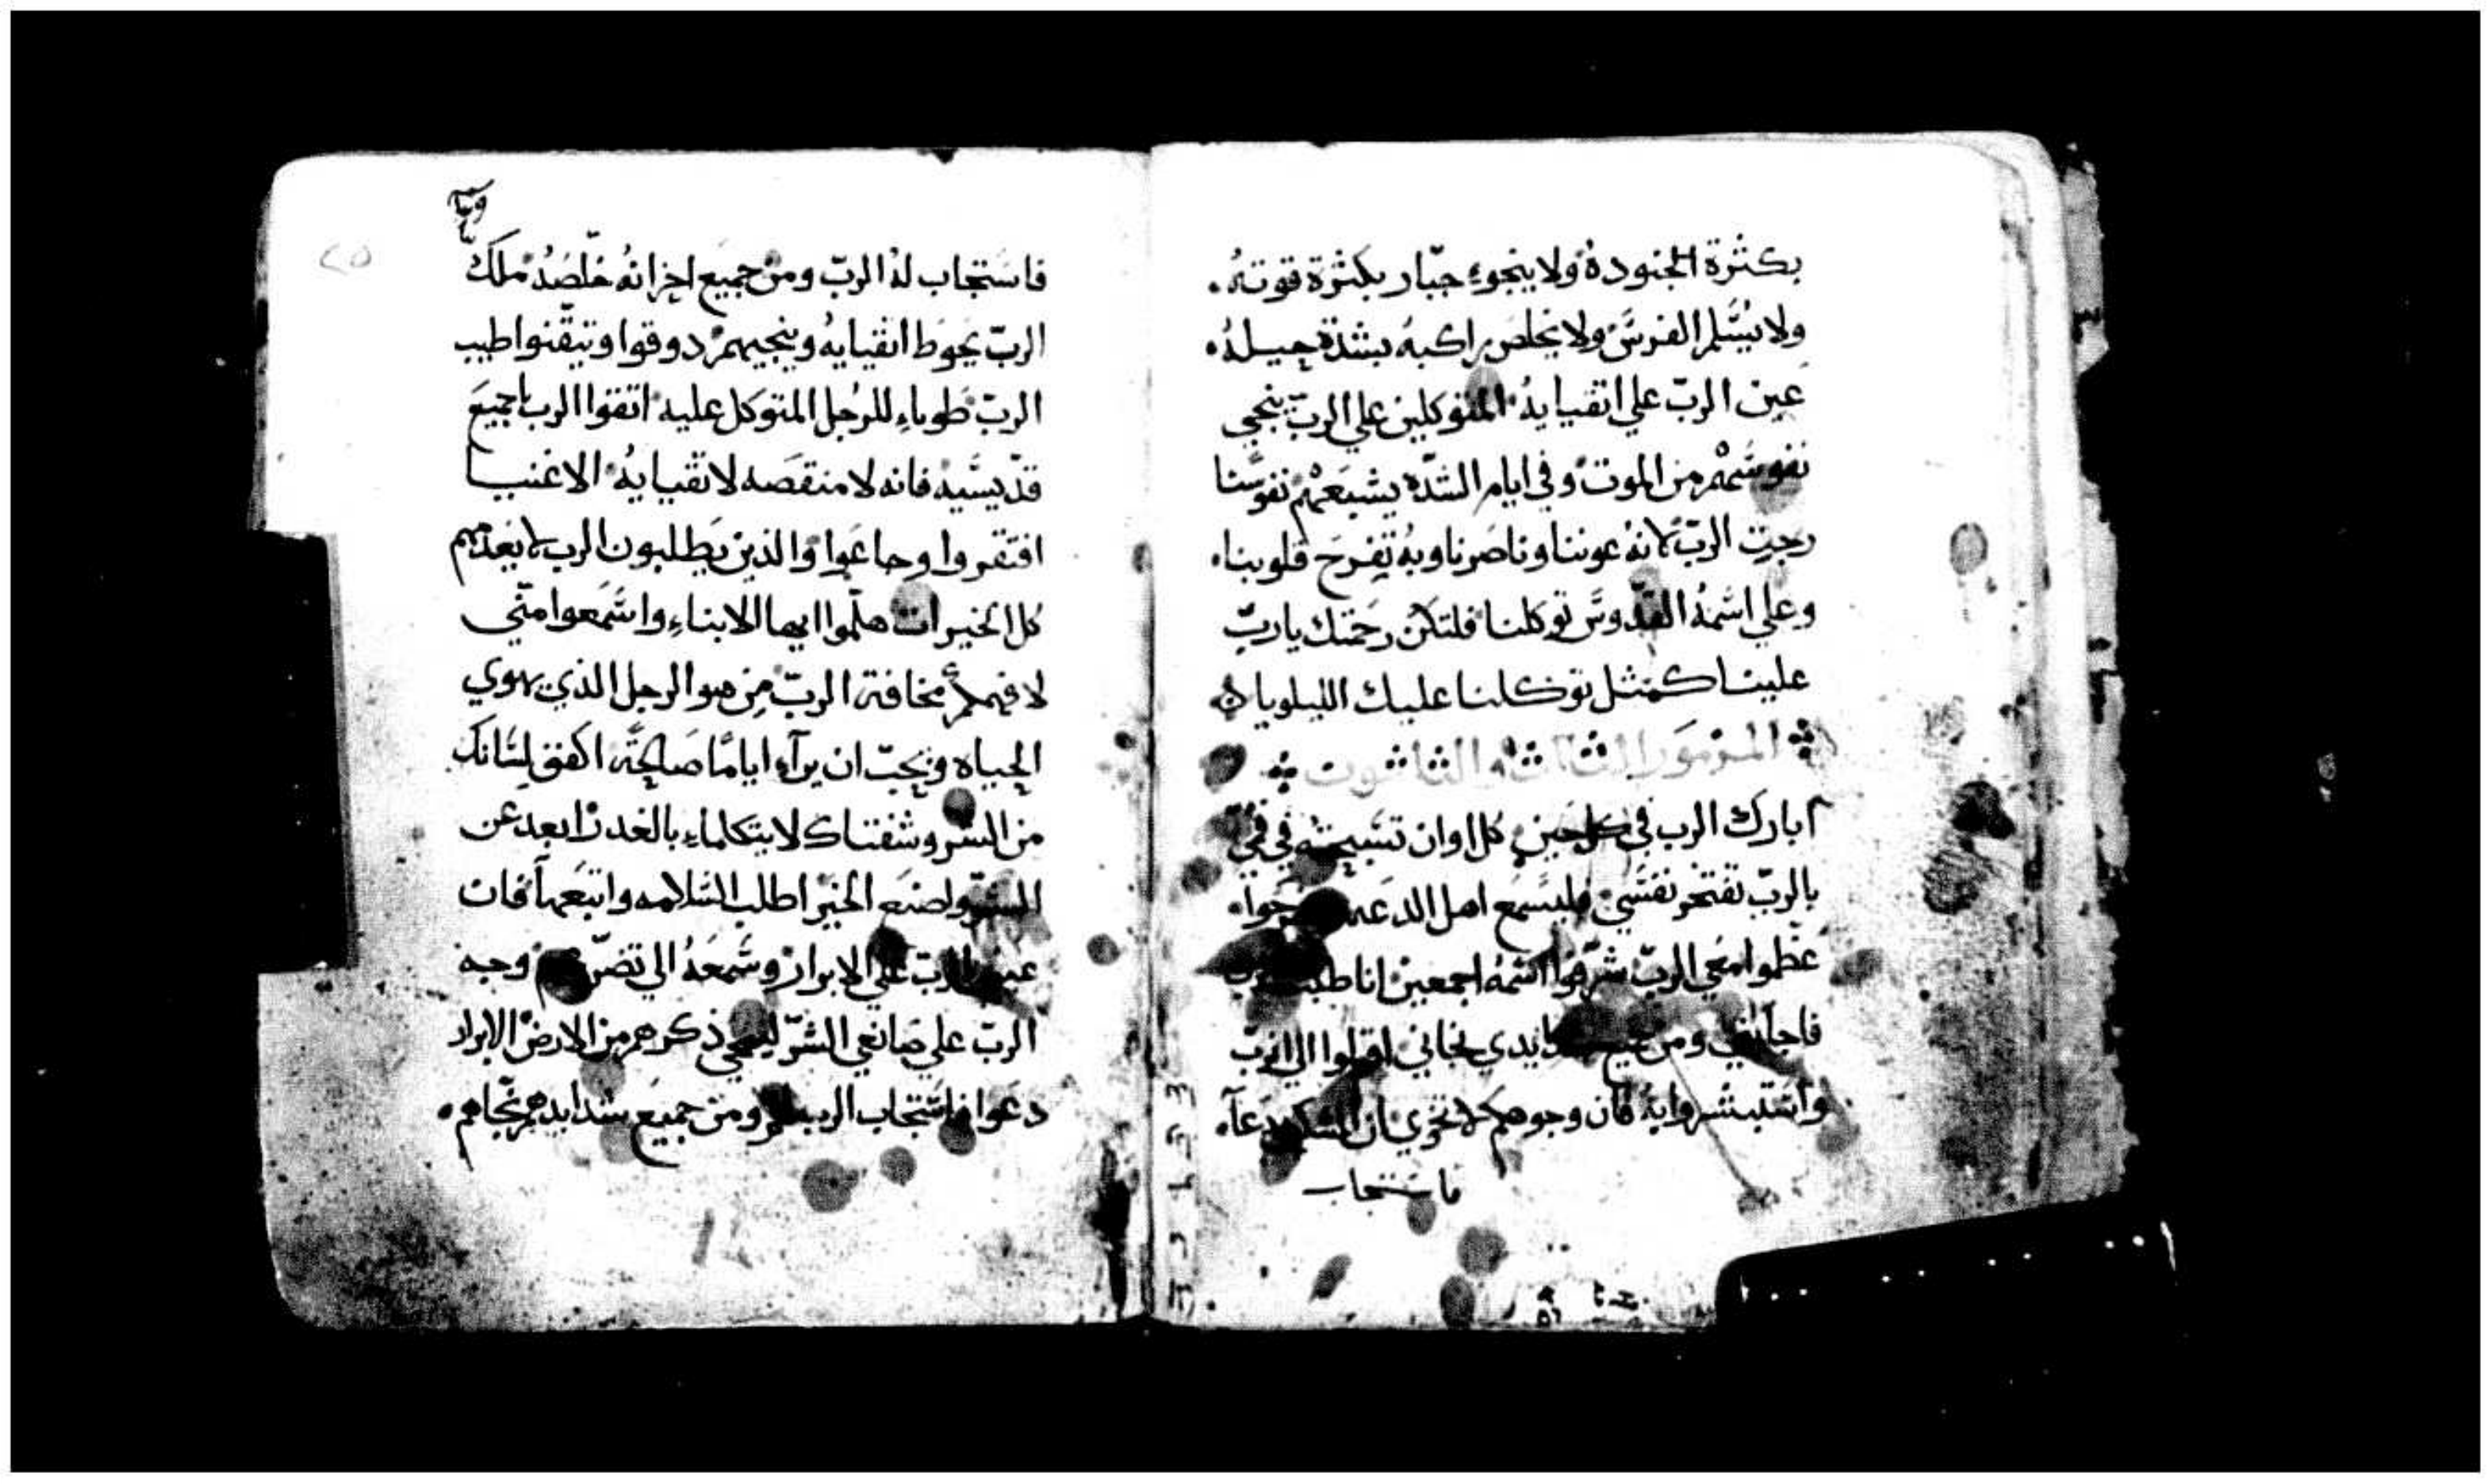 بكثرة الجنوده ولا ينجوء جبّار بكثرة قوته.
ولا يسلم الفرس ولا يخلص راكبه بشدة حيله.
عين الربّ علي اتقيايه المتوكلين علي الربّ ينجي
نفوسهم من الموت وفي ايام الشدّه يشبعهم نفوسنا
رجت الربّ لانه عوننا وناصرنا وبه تفرح قلوبنا.
وعلي اسمه القدّوس توكلنا فلتكن رحمتك ياربّ
علينا كمثل توكلنا عليك الليلويا
المزمور الثالث والثلاثون
ابارك الرب في كل حين كل اوان تسبيحته في فيّ
بالربّ تفتخر نفسي فليسمع اهل الدعه
عظموا معي الربّ شرّفوا اسمه اجمعين انا طلبت
ومن جميع نجاني اقبلوا الي الربّ
واستبشروا به فان وجوهكم لا تخزي ان المسكين دعاء.
فاستجاب
وستا
فاستجاب له الربّ ومن جميع احزانه خلّصه ملاك
الربّ يحوط اتقيايه وينجيهم دوقوا وتيقّنوا طيب
الربّ طوباء للرجل المتوكل عليه اتقوا الرب يا جميع
قدّيسيه فانه لا منقصه لاتقيايه الاغنيا
افتقروا وجاعوا والذين يطلبون الرب لا يعدمهم
كل الخيرات هلّموا ايها الابناء واسمعوا منّي
لافهمكم مخافة الربّ من هو الرجل الذي يهوي
الحياه ويحبّ ان يرآء اياما صالحة اكفف لسانك
من الشر وشفتاك لا يتكلماء بالغدر ابعد عن
الشرّ واصنع الخير اطلب السلامه واتبعها فان
عين الربّ علي الابرار وسمعه الي تضرّعهم وجه
الربّ علي صانعي الشرّ ليمحي ذكرهم من الارض الابرار
دعوا فاستجاب الرب لهم ومن جميع شدايدهم نجّاهم.